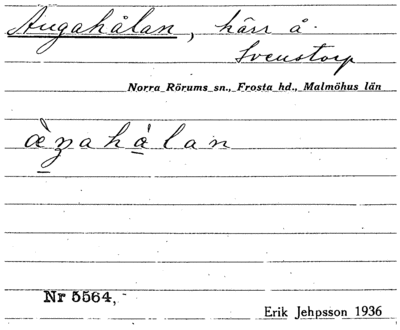 Augahålan, kärr å
Svenstorp
Norra Rörums sn., Frosta hd., Malmöhus län
Nr 5564,
Erik Jehpsson 1936